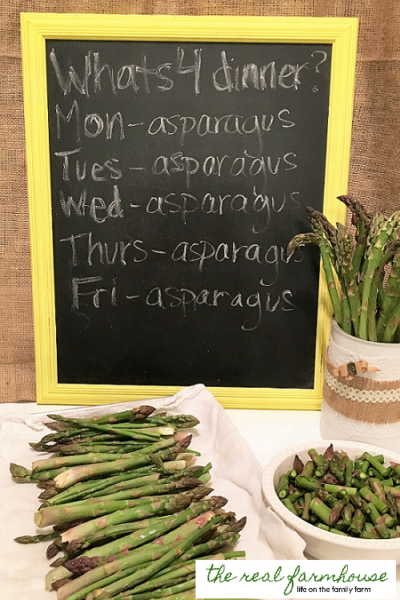 Whats 4 dinner?
Mon - asparagus
Tues - asparagus
Wed - asparagus
Thurs - asparagus
Fri - asparagus
the real farmhouse
life on the family farm